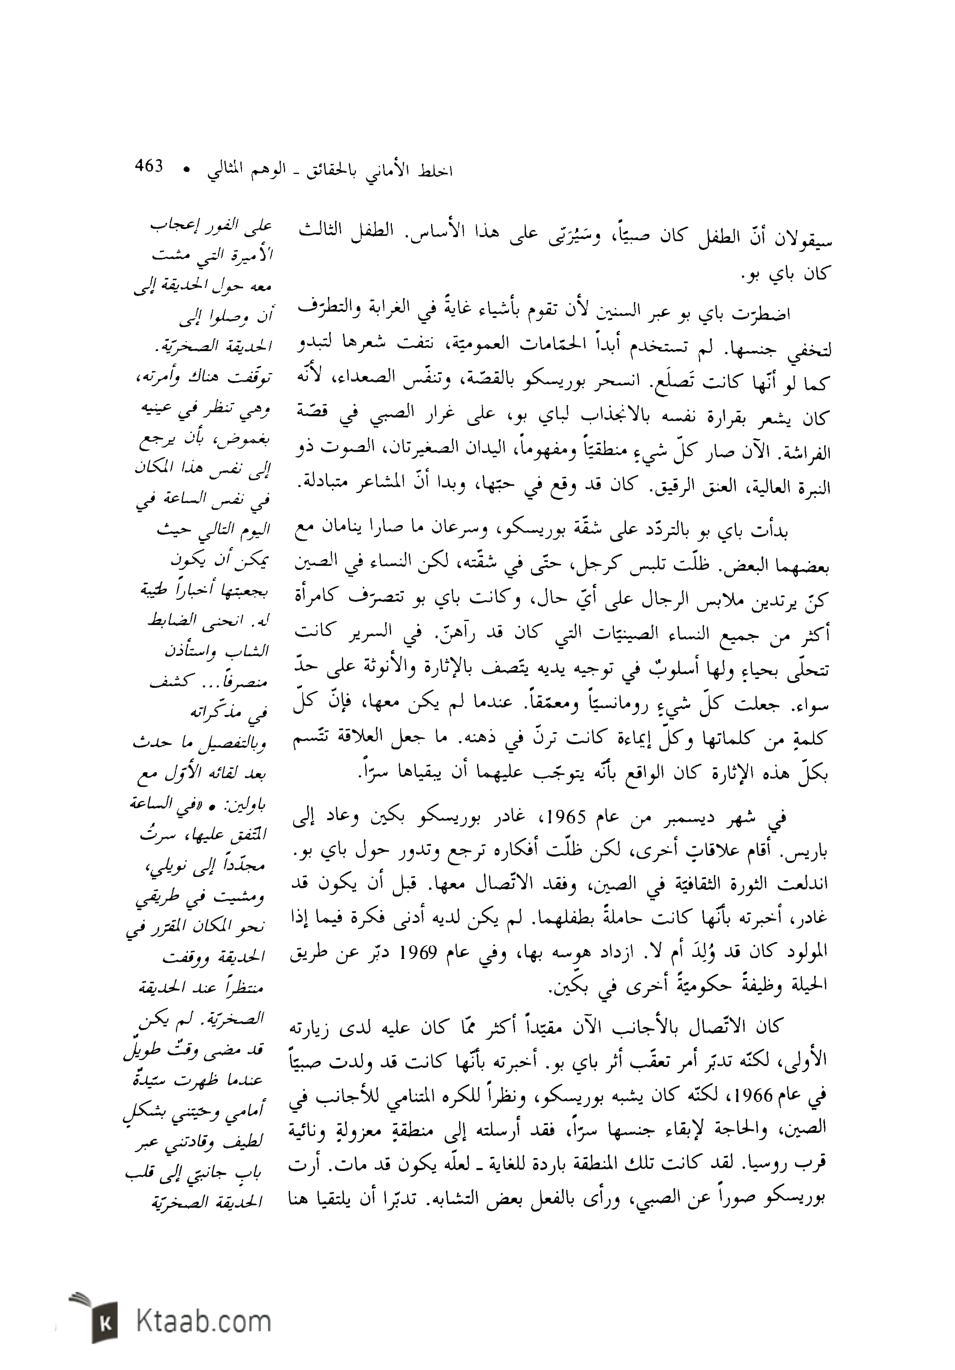 اخلط الأماني بالحقائق ـ الوهم المثالي • 463
سيقولان أنّ الطفل كان صبيّاً، وسَيُرَبّى على هذا الأساس. الطفل الثالث
كان باي بو.
اضطرّت باي بو عبر السنين لأن تقوم بأشياء غايةً في الغرابة والتطرّف
لتخفي جنسها. لم تستخدم أبداً الحمّامات العموميّة، نتفت شعرها لتبدو
كما لو أنّها كانت تَصلَع. انسحر بوريسكو بالقصّة، وتنفّس الصعداء، لأنّه
كان يشعر بقرارة نفسه بالانجذاب لباي بو، على غرار الصبي في قصّة
الفراشة. الآن صار كلّ شيءٍ منطقيّاً ومفهوماً، اليدان الصغيرتان، الصوت ذو
النبرة العالية، العنق الرقيق. كان قد وقع في حبّها، وبدا أنّ المشاعر متبادلة.
بدأت باي بو بالتردّد على شقّة بوريسكو، وسرعان ما صارا ينامان مع
بعضهما البعض. ظلّت تلبس كرجل، حتّى في شقّته، لكن النساء في الصين
كنّ يرتدين ملابس الرجال على أيّ حال، وكانت باي بو تتصرّف كامرأة
أكثر من جميع النساء الصينيّات التي كان قد رآهنّ. في السرير كانت
تتحلّى بحياءٍ ولها أسلوبٌ في توجيه يديه يتّصف بالإثارة والأنوثة على حدّ
سواء. جعلت كلّ شيءٍ رومانسيّاً ومعمّقاً. عندما لم يكن معها، فإنّ كلّ
كلمةٍ من كلماتها وكلّ إيماءة كانت ترنّ في ذهنه. ما جعل العلاقة تتّسم
بكلّ هذه الإثارة كان الواقع بأنّه يتوجّب عليهما أن يبقياها سرّاً.
في شهر ديسمبر من عام 1965، غادر بوريسكو بكين وعاد إلى
باريس. أقام علاقاتٍ أخرى، لكن ظلّت أفكاره ترجع وتدور حول باي بو.
اندلعت الثورة الثقافيّة في الصين، وفقد الاتّصال معها. قبل أن يكون قد
غادر، أخبرته بأنّها كانت حاملةً بطفلهما. لم يكن لديه أدنى فكرة فيما إذا
المولود كان قد وُلِدَ أم لا. ازداد هوسه بها، وفي عام 1969 دبّر عن طريق
الحيلة وظيفةً حكوميّةً أخرى في بكّين.
كان الاتّصال بالأجانب الآن مقيّداً أكثر ممّا كان عليه لدى زيارته
الأولى، لكنّه تدبّر أمر تعقّب أثر باي بو. أخبرته بأنّها كانت قد ولدت صبيّاً
في عام 1966، لكنّه كان يشبه بوريسكو، ونظراً للكره المتنامي للأجانب في
الصين، والحاجة لإبقاء جنسها سرّاً، فقد أرسلته إلى منطقةٍ معزولةٍ ونائية
قرب روسيا. لقد كانت تلك المنطقة باردة للغاية ـ لعلّه يكون قد مات. أرت
بوريسكو صوراً عن الصبي، ورأى بالفعل بعض التشابه. تدبّرا أن يلتقيا هنا
على الفور إعجاب
الأميرة التي مشت
معه حول الحديقة إلى
أن وصلوا إلى
الحديقة الصخريّة.
توقّفت هناك وأمرته،
وهي تنظر في عينيه
بغموض، بأن يرجع
إلى نفس هذا المكان
في نفس الساعة في
اليوم التالي حيث
يمكن أن يكون
بجعبتها أخباراً طيّبة
له. انحنى الضابط
الشاب واستأذن
منصرفاً... كشف
في مذكّراته
وبالتفصيل ما حدث
بعد لقائه الأوّل مع
باولين: • «في الساعة
المتّفق عليها، سرتُ
مجدّداً إلى نويلي،
ومشيت في طريقي
نحو المكان المقرّر في
الحديقة ووقفت
منتظراً عند الحديقة
الصخريّة. لم يكن
قد مضى وقتٌ طويلٌ
عندما ظهرت سيّدةٌ
أمامي وحيّتني بشكلٍ
لطيف وقادتني عبر
بابٍ جانبيّ إلى قلب
الحديقة الصخريّة
Ktaab.com